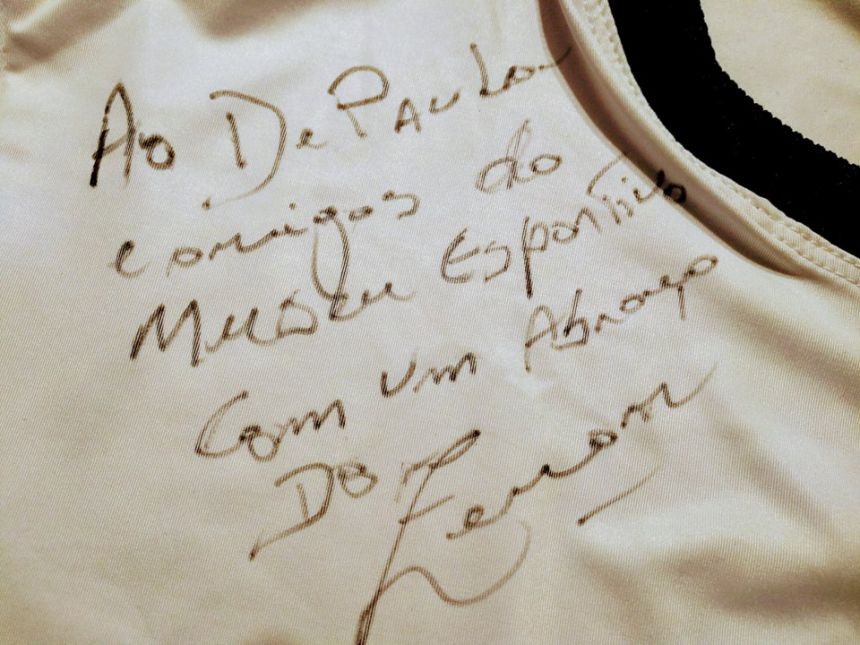 Ao De Paula
e amigos do
Museu Esportivo
Com um Abraço
Do